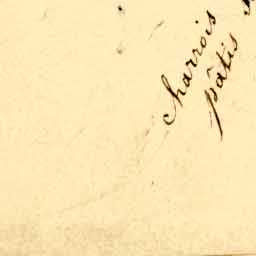 charrois
pâtis